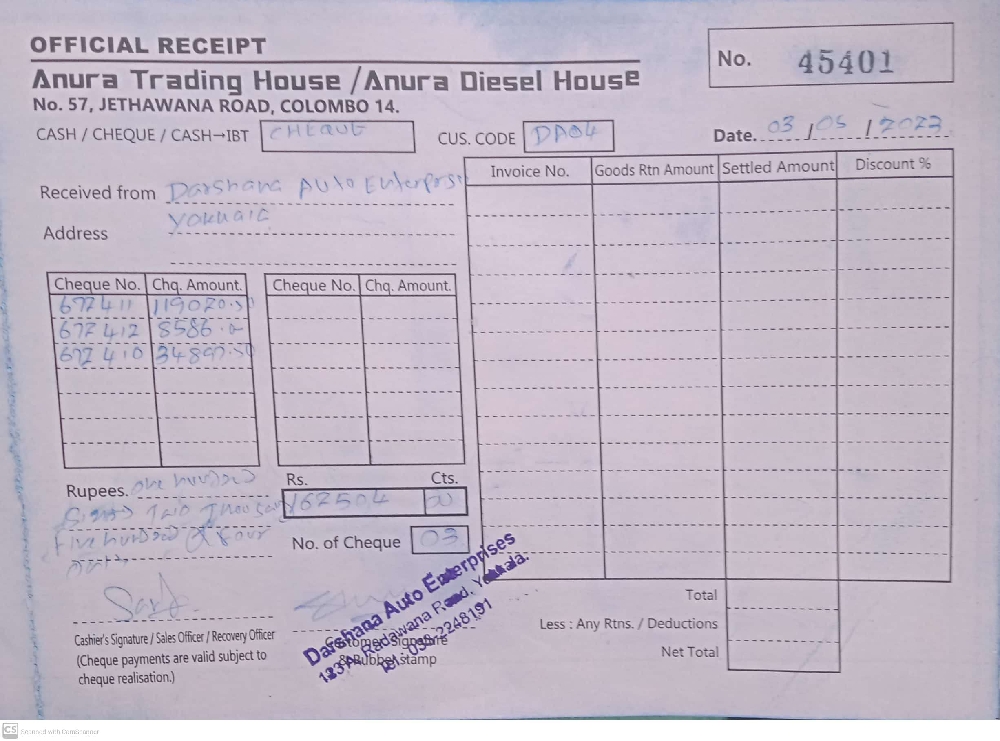 OFFICIAL RECEIPT
No. 45401
Anura Trading House / Anura Diesel House
No. 57, JETHAWANA ROAD, COLOMBO 14.
CASH / CHEQUE / CASH→IBT CHEQUE CUS. CODE DA04 Date. 03 / 05 / 2023
Invoice No. Goods Rtn Amount Settled Amount Discount %
Received from Darshana Auto Enterprise
Address
Cheque No. Chq. Amount. Cheque No. Chq. Amount.
672411 119020.50
672412 8586.
672410 34897.50
Rupees. one hundred
Thousand
Five hundred & Four
Rs. Cts.
162504 00
No. of Cheque 03
Cashier's Signature / Sales Officer / Recovery Officer
(Cheque payments are valid subject to
cheque realisation.)
Customer Signature
& Rubber stamp
Darshana Auto Enterprises
Radawana Road, Yakkala.
Total
Less : Any Rtns. / Deductions
Net Total
CS Scanned with CamScanner